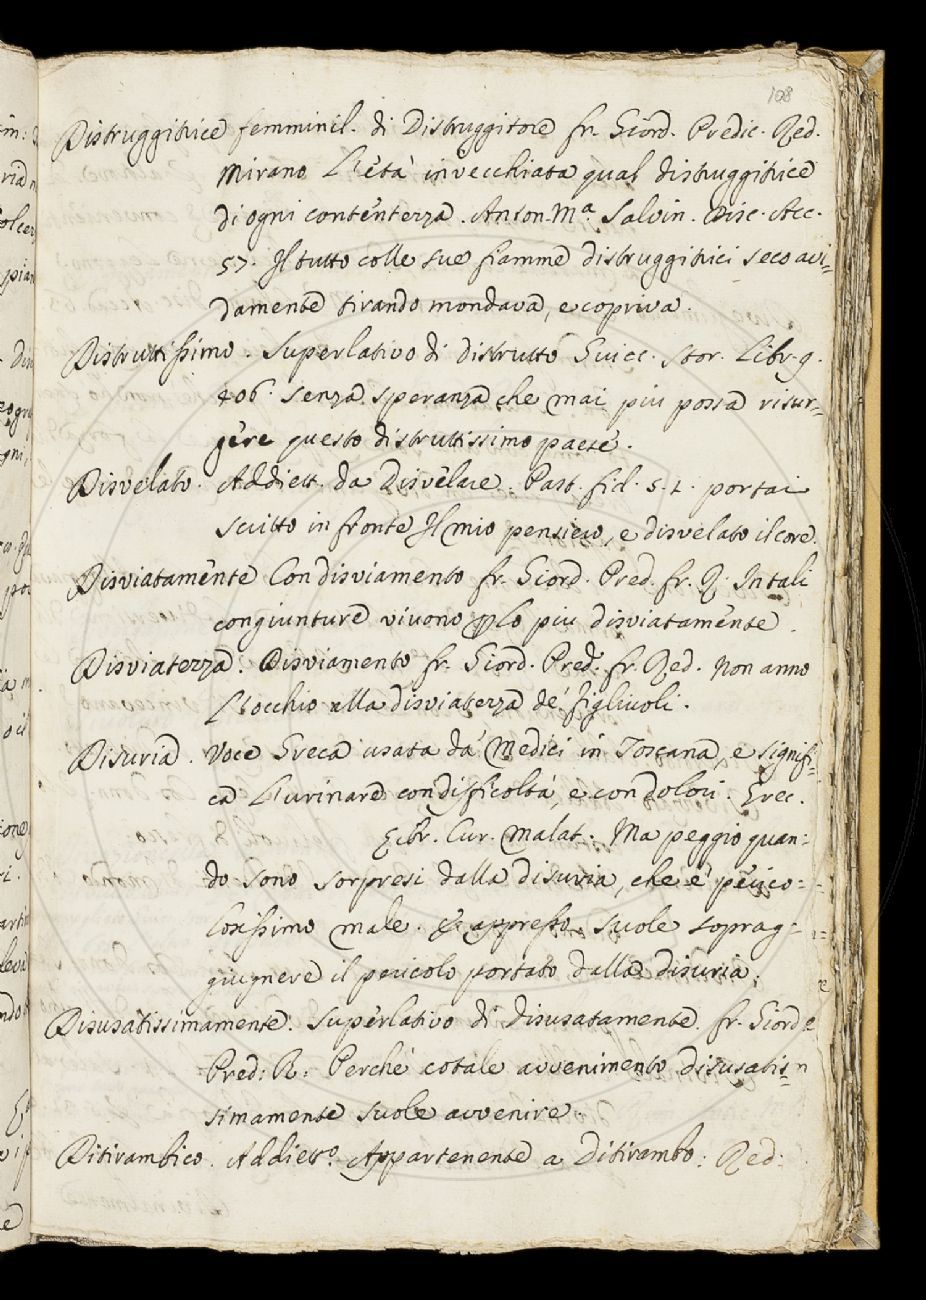 108
Distruggitrice femminil. di Distruggitore fr. Giord. Predic. Red.
Mirano L'età invecchiata qual distruggitrice
di ogni contentezza. Anton. Mª. Salvin. Disc. Acc.
57. Il tutto colle sue fiamme distruggitrici seco avi=
damente tirando mondava, e copriva.
Distruttissimo. Superlativo di distrutto Guicc. Stor. Libr. 9.
406. senza speranza che mai piu possa risur=
gere questo distruttissimo paese.
Disvelato. Addiett. da Disvelare. Past. fid. 5. 2. portai
scritto in fronte Il mio pensiero, e disvelato il core.
Disviatamente Con disviamento fr. Giord. Pred. fr. R. In tali
congiunture vivono plo piu disviatamente.
Disviatezza. Disviamento fr. Giord. Pred. fr. Red. Non anno
L'occhio alla disviatezza de' figliuoli.
Disuria. Voce Greca usata da' Medici in Toscana, e signifi=
ca L'urinare con difficoltà, e con dolori. Grec.
Libr. Cur. Malat. Ma peggio quan=
do sono sorpresi dalla disuria, che è perico=
losissimo male. & appresso. Suole soprag=
giugnere il pericolo portato dalla disuria.
Disusatissimamente. Superlativo di disusatamente. fr. Giord
Pred: R: Perchè cotale avvenimento disusatis=
simamente suole avvenire.
Ditirambico. Addietº. Appartenente a Ditirambo: Red: